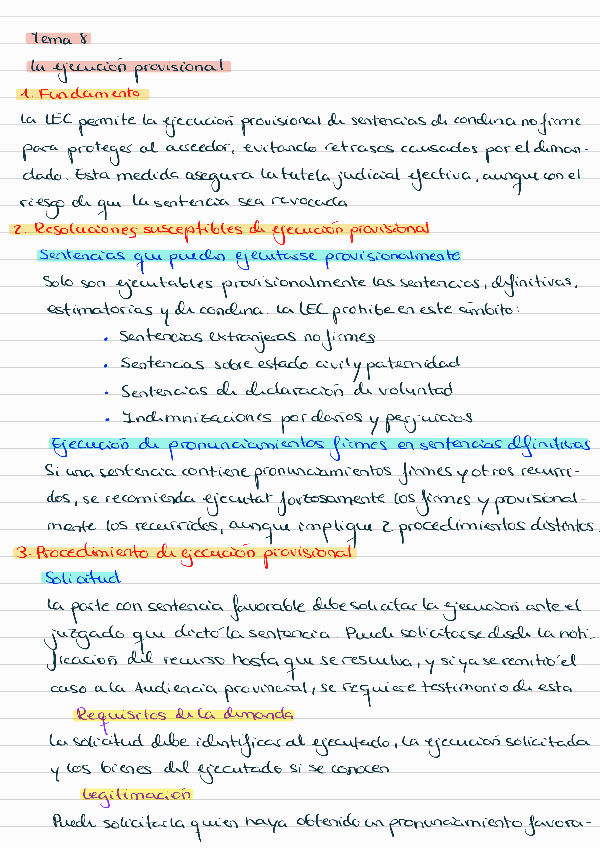 Tema 8
La ejecución provisional
1. Fundamento
La LEC permite la ejecución provisional de sentencias de condena no firme
para proteger al acreedor, evitando retrasos causados por el deman-
dado. Esta medida asegura la tutela judicial efectiva, aunque con el
riesgo de que la sentencia sea revocada
2. Resoluciones susceptibles de ejecución provisional
Sentencias que pueden ejecutarse provisionalmente
Solo son ejecutables provisionalmente las sentencias, definitivas,
estimatorias y de condena. La LEC prohíbe en este ámbito:
• Sentencias extranjeras no firmes
• Sentencias sobre estado civil y paternidad
• Sentencias de declaración de voluntad
• Indemnizaciones por daños y perjuicios
Ejecución de pronunciamientos firmes en sentencias definitivas
Si una sentencia contiene pronunciamientos firmes y otros recurri-
dos, se recomienda ejecutar forzosamente los firmes y provisional-
mente los recurridos, aunque implique 2 procedimientos distintos.
3. Procedimiento de ejecución provisional
Solicitud
La parte con sentencia favorable debe solicitar la ejecución ante el
juzgado que dictó la sentencia. Puede solicitarse desde la noti-
ficación del recurso hasta que se resuelva, y si ya se remitió el
caso a la Audiencia provincial, se requiere testimonio de esta
Requisitos de la demanda
La solicitud debe identificar al ejecutado, la ejecución solicitada
y los bienes del ejecutado si se conocen
Legitimación
Puede solicitarla quien haya obtenido un pronunciamiento favora-